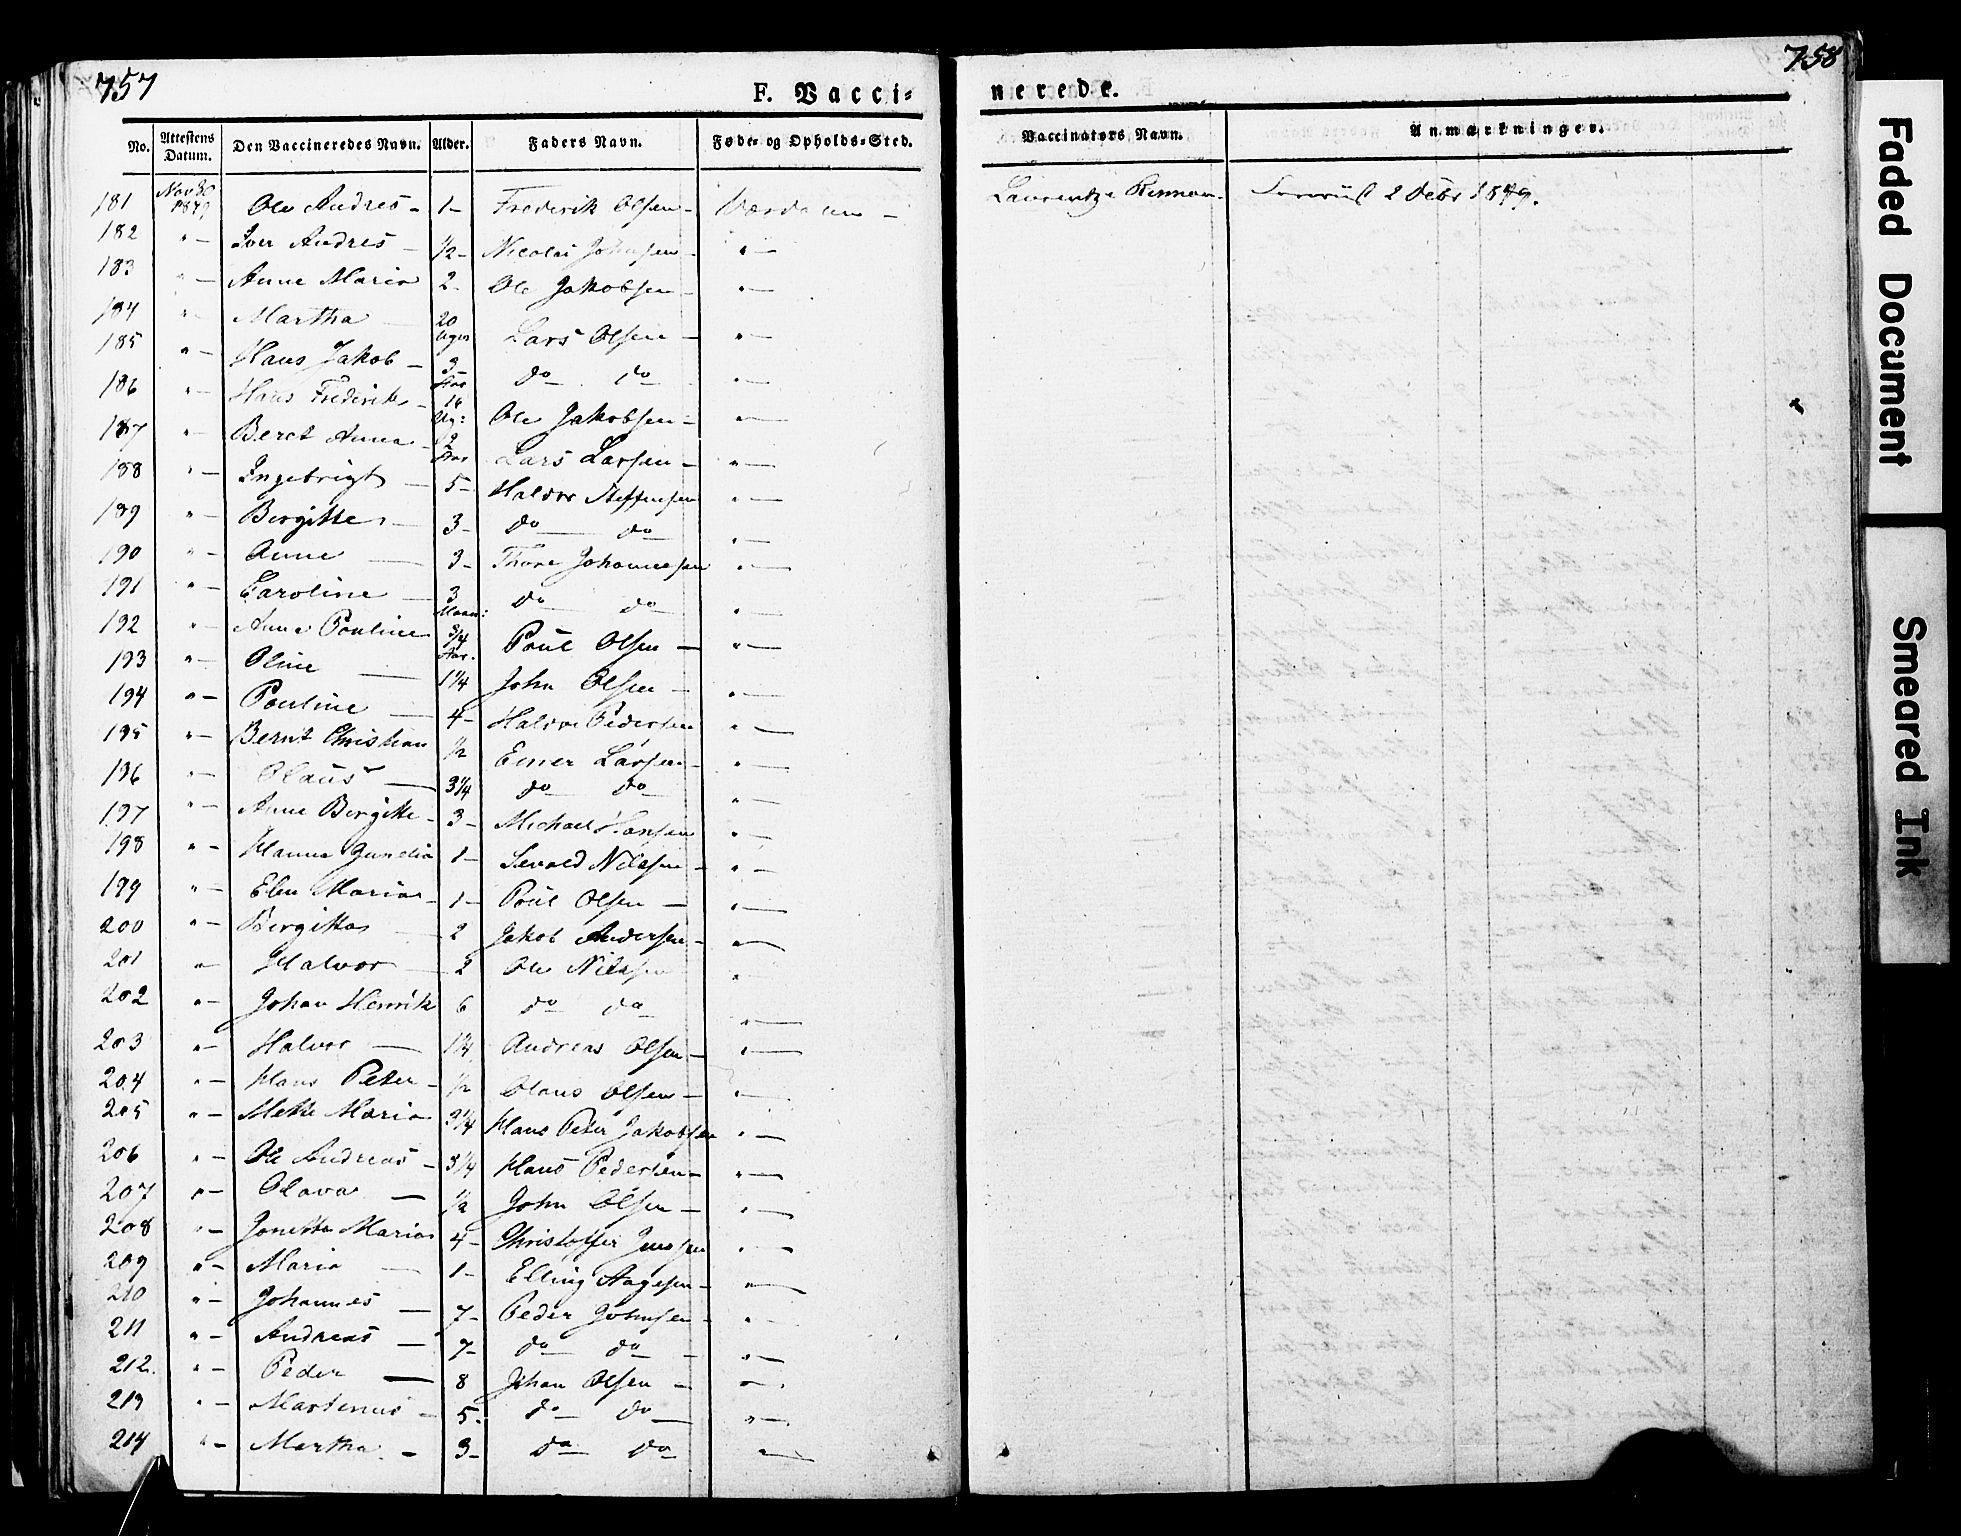 757
F. Vacci-
No. Attestens Datum. Den Vaccineredes Navn. Alder. Faders Navn. Føde- og Opholds-Sted.
181 Nov 30 1849 Ole Andreas - 1 - Frederik Olsen - Værdalen -
182 " - Iver Andreas - 1/2 - Nicolai Johnsen - " -
183 " - Anne Maria 2 - Ole Jakobsen - " -
184 " - Martha - 20 Uger Lars Olsen - " -
185 " - Hans Jakob - 3 - Aar do do " -
186 " - Hans Frederik - 16 Ug: Ole Jakobsen - " -
187 " - Beret Anna - 2 Aar Lars Larsen - " -
188 " - Ingebrigt - 5 - Haldor Steffensen " -
189 " - Bergitte - 3 - do do " -
190 " - Anne - 3 - Thore Johannesen " -
191 " - Caroline - 3 Maan: do do " -
192 " - Anne Pouline 3/4 Aar. Poul Olsen - " -
193 " - Oline - 1 1/4 John Olsen - " -
194 " - Pouline - 4 - Haldor Pedersen " -
195 " - Bernt Christian 1/2 Einer Larsen - " -
196 " - Olaus - 3 1/4 do do " -
197 " - Anne Bergitte - 3 - Michael Hansen " -
198 " - Hanna Gunelia 1 - Sevald Nilssen - " -
199 " - Elen Maria - 1 - Poul Olsen - " -
200 " - Bergitta - 2 Jakob Andersen - " -
201 " - Halvor - 2 Ole Nilssen " -
202 " - Johan Henrik 6 do do " -
203 " - Halvor - 1 3/4 Andreas Olsen - " -
204 " - Hans Peter - 1/2 Olaus Olsen - " -
205 " - Mette Maria 3 1/4 Hans Peter Jakobsen " -
206 " - Ole Andreas - 3 1/4 Hans Pedersen - " -
207 " - Olava - 1/2 John Olsen - " -
208 " - Jonetta Maria 4 - Christoffer Jensen " -
209 " - Maria - 1 - Elling Aagesen - " -
210 " - Johannes - 7 - Peder Johnsen - " -
211 " - Andreas - 7 - do do - " -
212. " - Peder - 8 Johan Olsen - " -
213 " - Martinus - 5 - do do - " -
214 " - Martha - 3 - do do " -
758
nerede.
Vaccinators Navn. Anmærkninger.
2 Febr 1849.
Faded Document
Smeared Ink